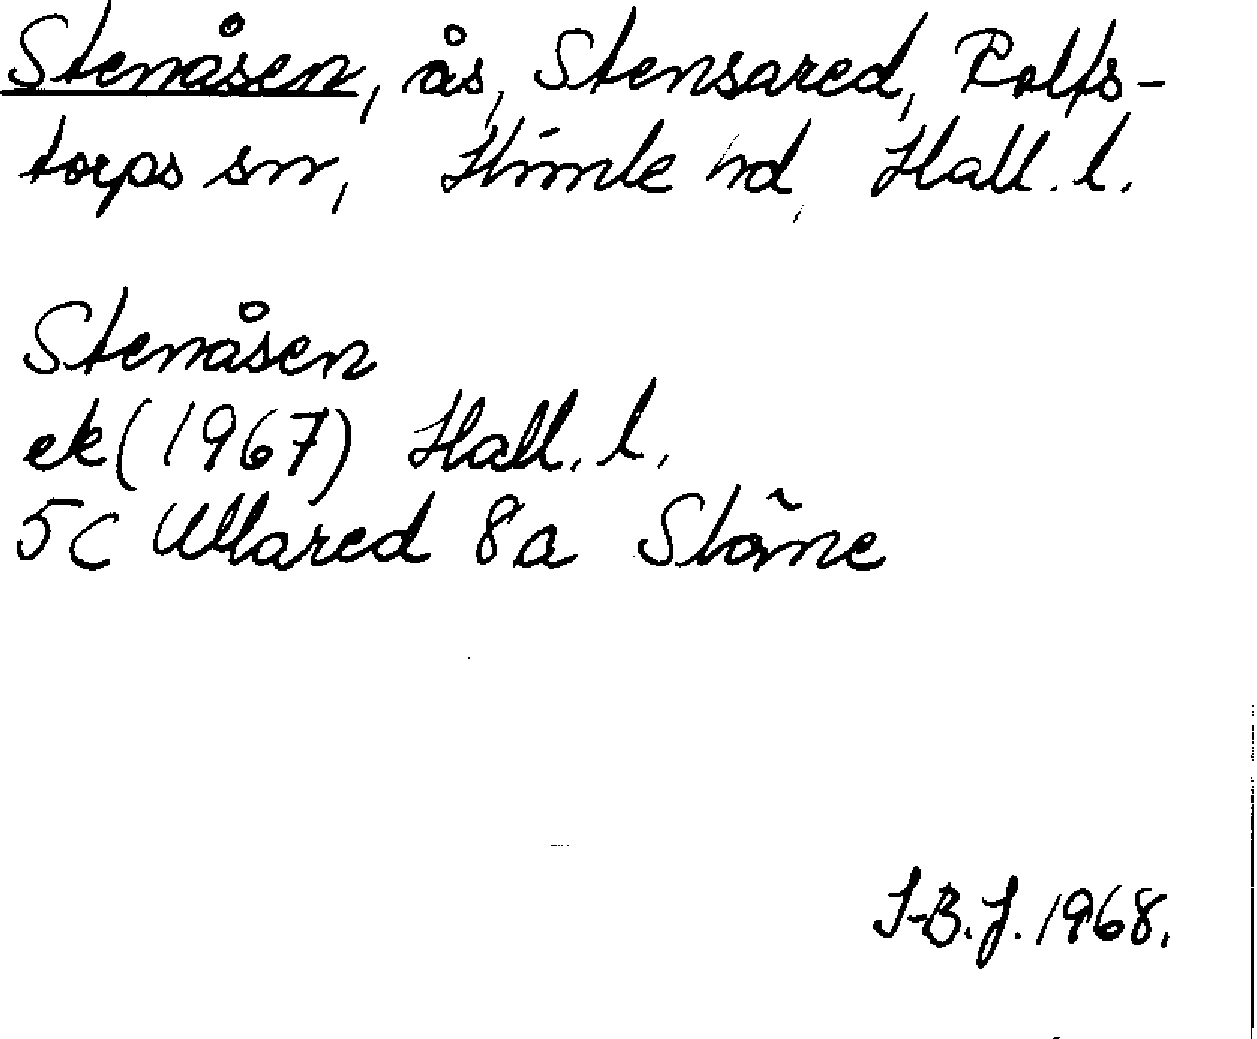 Stenåsen, ås, Stensared, Rolfs-
torps sn, Himle hd, Hall. l.
Stenåsen
ek (1967) Hall. l.
5C Ullared 8a Ståne
I-B.J. 1968.